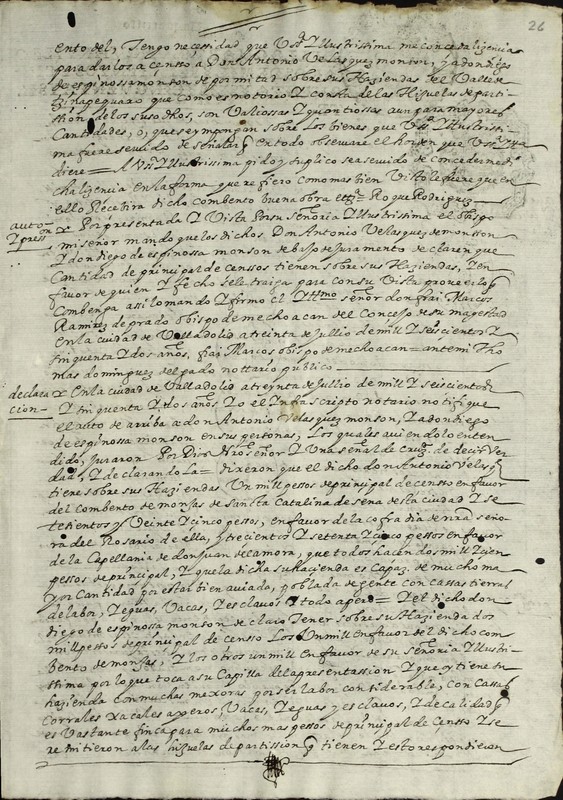 26
ento del, Tengo necessidad que Vsª Yllustrissima me conceda licencia
para darlos a çensso a Don Antonio Velasquez monson, y a don diego
de espinossa monson de por mitad sobre sus Haziendas del Valle de
que como es notorio Y consta de las Hijuelas de parti-
sion de los susodhos, son Valiossas Y quantiossas aun para mayores
Cantidades, o, que se ympongan sobre Los bienes que Vssª Yllustrissi-
ma fuere seruido de señalar, q en todo obseruare el horden que Vssª Yllma
diere = A Vsª Yllustrissima pido y suplico sea seruido de concederme di-
cha licencia en la forma que refiero como mas bien Visto le fuere que en
ello Receuira dicho combento buena obra ettª Roque Rodriguez
auto
Y press.on
Y Por presentada Y Vista Por su señoria Yllustrissima el obispo
mi señor mando que los dichos Don Antonio Velasquez de monson
Y don diego de espinossa monson debajo de juramento declaren que
Cantidad de principal de censsos tienen sobre sus Haziendas, Y en
fauor de quien Y fecho se le traiga para con su Vista proueer lo q
Combenga assi lo mando Y firmo el Yllmo señor don frai Marcos
Ramirez de prado obispo de mechoacan del Consejo de su magestad
En la ciudad de Valladolid a treinta de Jullio de mill Y seiscientos Y
sinquenta Y dos años, frai Marcos obispo de mechoacan = ante mi Tho
mas dominguez delgado nottario publico
declara
cion
Y En la ciudad de Valladolid a treynta de Jullio de mill Y seiscientos
Y sinquenta Y dos años Yo el Infrascripto notario notifique
el auto de arriba a don Antonio Velasquez monson, Y a don diego
de espinossa monson en sus personas, Los quales auiendolo enten
dido, juraron Por Dios Nro señor Y Una señal de cruz de decir Ver
dad, Y declarando La = dixeron que el dicho don Antonio Velasqz
tiene sobre sus Haziendas Un mill pessos de principal de censso en fauor
del Combento de monjas de Sancta Catalina de sena desta ciudad Y se
tecientos y Veinte Y cinco pessos, en fauor de la cofradia de nra seño-
ra del Rosario de ella, y trecientos Y setenta Y cinco pessos en fauor
de la Capellania de don Juan de Camora, que todos hacen dos mill Y cien
pessos de principal, Y que la dicha su hacienda es Capaz de mucho ma
yor Cantidad por estar bien auiada, y poblada de gente con cassas tierras
de labor, Yeguas, Vacas, Y esclauos Y todo apero = Y el dicho don
diego de espinossa monson declaro tener sobre su Hazienda dos
mill pessos de principal de censso Los Un mill en fauor del dicho com-
bento de monjas, Y los otros un mill en fauor de su señoria Yllustri-
ssima por lo que toca a su Capilla de la pressentassion Y que oy tiene su
hazienda con muchas mexoras por ser labor considerable, con Cassas
Corrales xacales aperos, Vacas, Yeguas y esclauos, Y de calidad q
es Vastante finca para muchos mas pessos de principal de censso Y se
remitieron a las hijuelas de partission q tienen Y esto respondieron